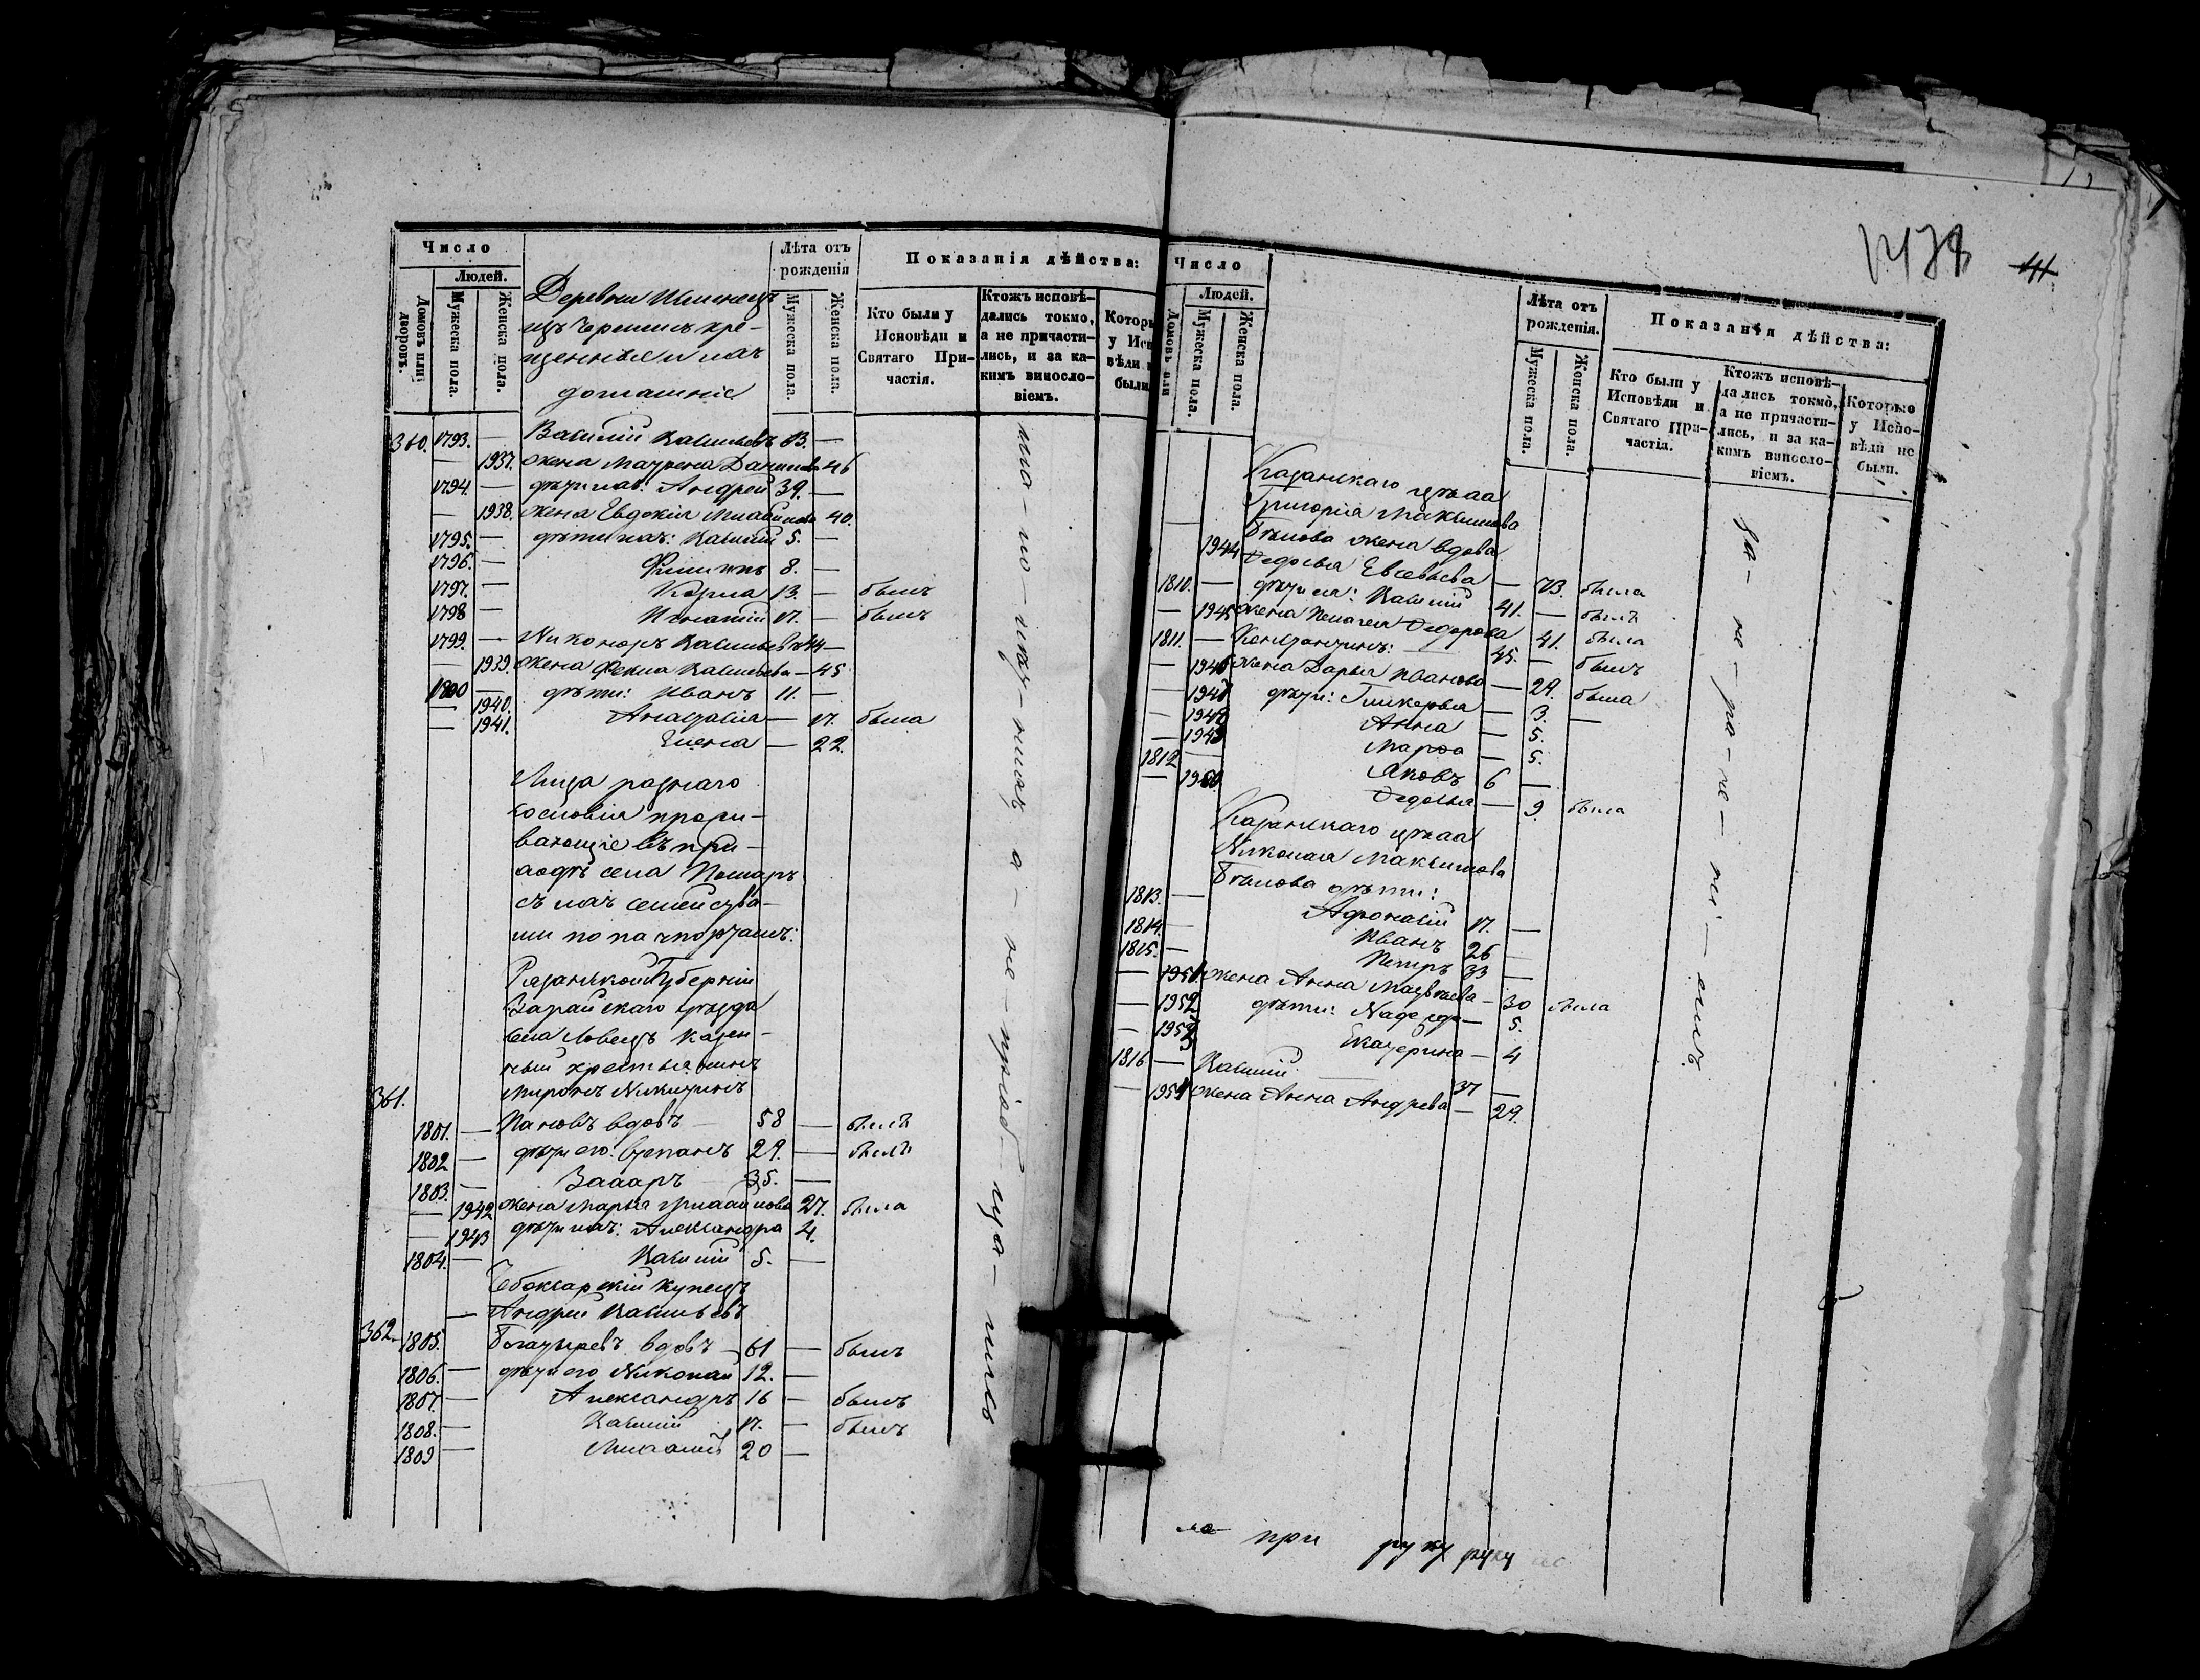 Число
Людей.
Домовъ или дворовъ.
Мужеска пола.
Женска пола.
Деревни
изъ черемисъ кре-
щенные и ихъ
домашніе
Лѣта отъ
рожденія
Мужеска пола.
Женска пола.
Показанія дѣйства:
Кто были у
Исповѣди и
Святаго При-
частія.
Ктожъ исповѣ-
дались токмо,
а не причасти-
лись, и за ка-
кимъ винсло-
віемъ.
360. 1793. — Василій Васильевъ —
— 1937. жена Маурена Данилова 46
1794. — дѣти ихъ: Андрей 39. —
— 1938. жена Евдокія 40.
1795. — дѣти ихъ: Василій 5. —
1796. — Филиппъ 8. —
1797. — Козма 13. — былъ
1798 — Игнатій 17. — былъ
1799. — Никоноръ Васильевъ 44 —
— 1939. жена Фекла Васильева — 45
1800 — дѣти: Иванъ 11. —
— 1940. Анастасія — 17. была
— 1941. Елена — 22.
Лица разнаго
сословія прожи-
вающіе въ при-
ходѣ села Пошаръ
съ ихъ семейства-
ми по пачпортамъ:
Рязанской Губерніи
Зарайскаго уѣзда
села Ловецъ казен-
ный крестьянинъ
Миронъ Никитинъ
361.
1801. — Пановъ вдовъ — 58 — былъ
1802 — дѣти его: Степанъ 29. — былъ
1803. — Захаръ 35. —
— 1942 жена Марья 27. была
— 1943 дѣти ихъ: Александра 4.
1804. — Василій 5. —
Чебоксарскій купецъ
— Андрей Васильевъ
362. 1805. Богатыревъ вдовъ — 61 — былъ
1806. — дѣти его Николай 12. —
1807. — Александръ 16 — былъ
1808. — Василій 17. — былъ
1809 — Михаилъ 20 —
1478 41.
Число
Людей.
Домовъ или
Мужеска пола.
Женска пола.
Лѣта отъ
рожденія.
Мужеска пола.
Женска пола.
Показанія дѣйства:
Кто были у
Исповѣди и
Святаго При-
частія.
Ктожъ исповѣ-
дались токмо,
а не причасти-
лись, и за ка-
кимъ винсло-
віемъ.
Которые
у Испо-
вѣди не
были.
Казанскаго
Григорія Максимова
Бѣлова жена вдова
— 1944 Федосья Евсевьева — 73. была
1810. — дѣти ея: Василій 41. — былъ
— 1945 жена Пелагея Федорова 41. была
1811. — Константинъ: 45. — былъ
— 1946 жена Дарья Иванова — 29. была
— 1947 дѣти: Гликерья — 3. —
— 1948 Анна — 5.
— 1949 Марфа — 5.
1812 — Яковъ 6 —
— 1950 Федосья — 9. была
Казанскаго
Николая Максимова
Бѣлова дѣти:
1813. — Афонасій 17. —
1814. — Иванъ 26 —
1815. — Петръ 33 —
— 1951 жена Анна Матвѣева — 30 была
— 1952 дѣти: Надежда — 5.
— 1953 Екатерина — 4
1816 — Василій 37 —
— 1954 жена Анна Андреева — 29.
при руку руку